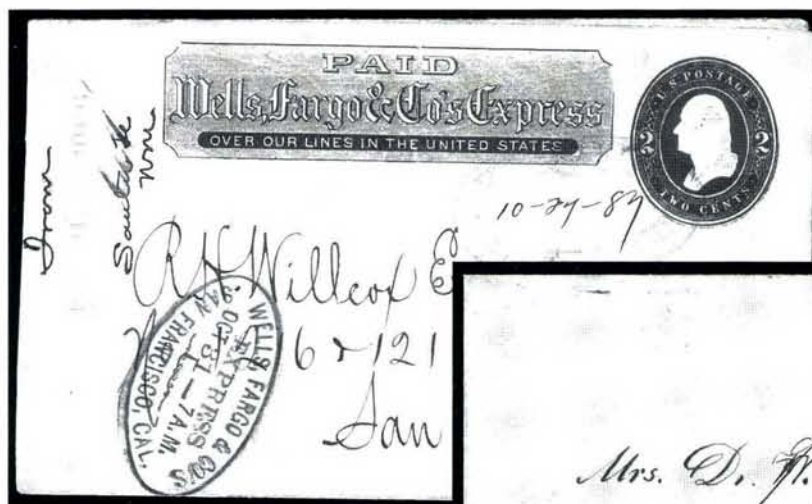 PAID
Wells, Fargo & Co's Express
OVER OUR LINES IN THE UNITED STATES
U S POSTAGE
2 2
TWO CENTS
From
Santa Fe
10-27-87
R. H. Willcox E
6 & 121
San
WELLS FARGO & CO'S
EXPRESS
OCT 31 - 7 A.M.
SAN FRANCISCO, CAL.
Mrs. Dr.